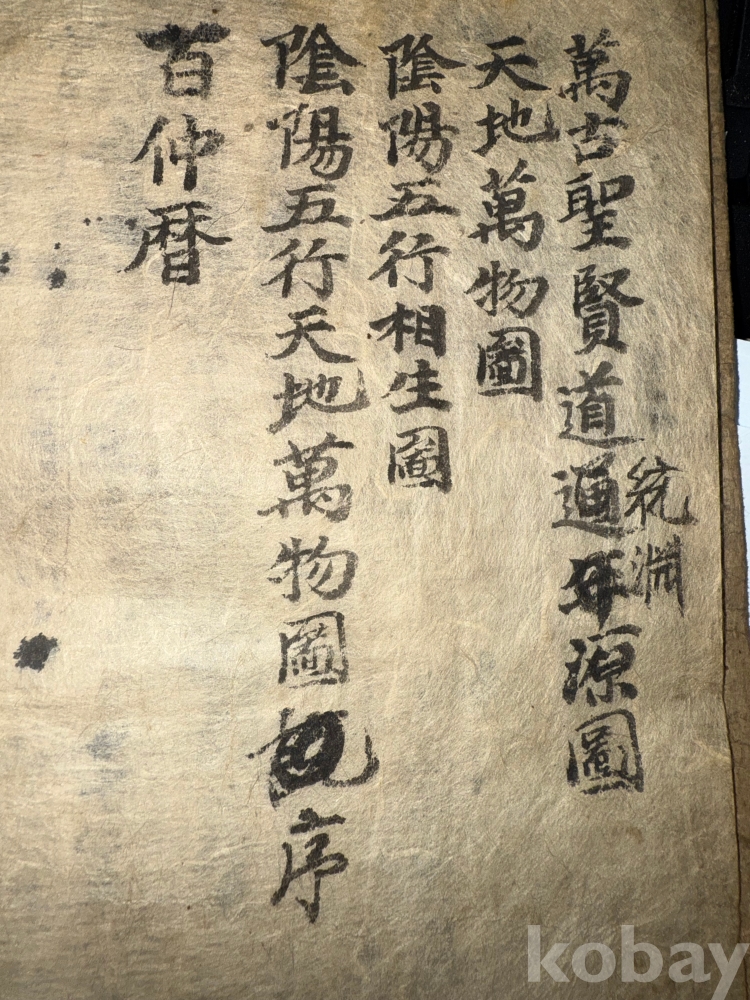 萬古聖賢道通源圖
統淵
天地萬物圖
陰陽五行相生圖
陰陽五行天地萬物圖序
百仲暦
kobay